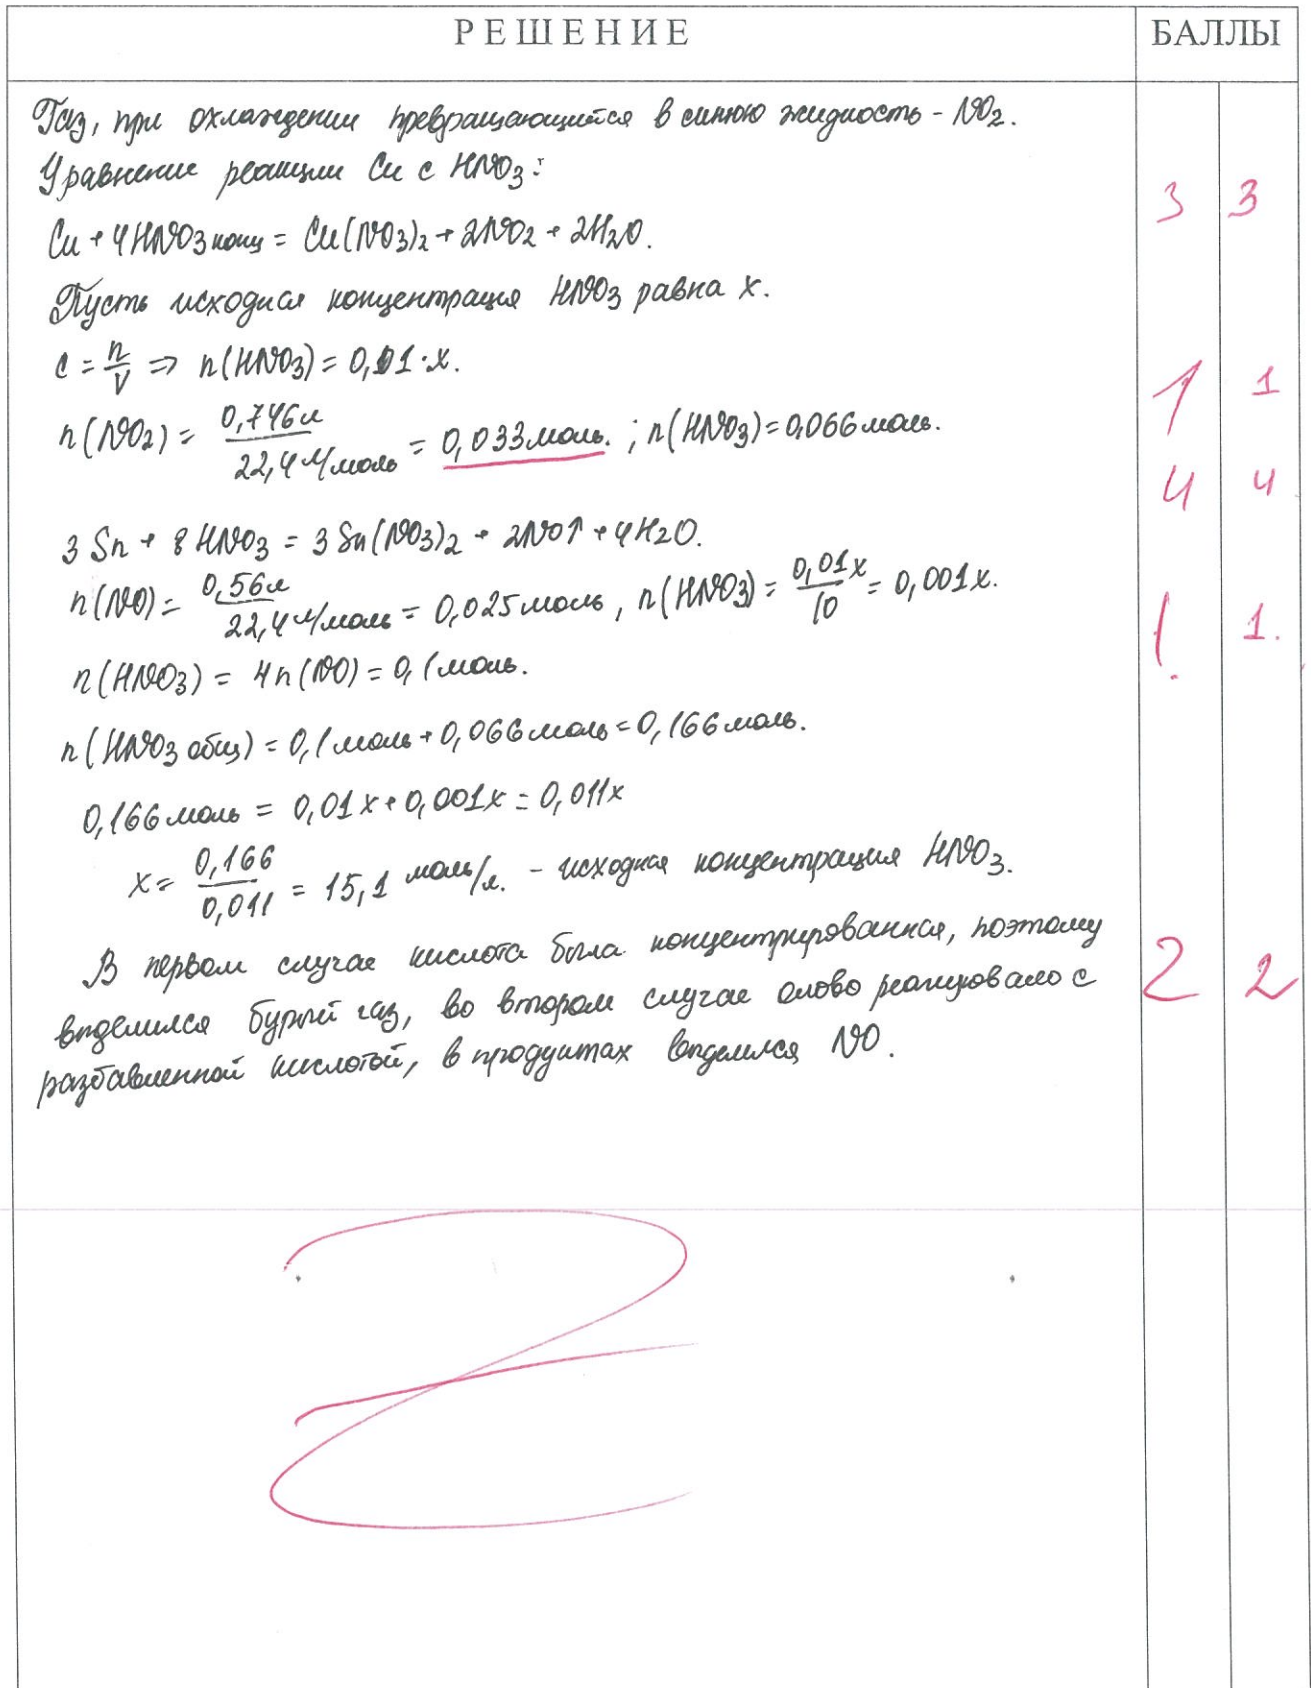 РЕШЕНИЕ
БАЛЛЫ
Газ, при охлаждении превращающийся в синюю жидкость - NO₂.
Уравнение реакции Cu с HNO₃:
3 3
Cu + 4HNO₃ конц = Cu(NO₃)₂ + 2NO₂ + 2H₂O.
Пусть исходная концентрация HNO₃ равна x.
c = n/V ⇒ n(HNO₃) = 0,01·x.
1 1
n(NO₂) = 0,746л / 22,4 л/моль = 0,033 моль. ; n(HNO₃) = 0,066 моль.
4 4
3 Sn + 8 HNO₃ = 3 Sn(NO₃)₂ + 2NO↑ + 4H₂O.
n(NO) = 0,56л / 22,4 л/моль = 0,025 моль, n(HNO₃) = 0,01x / 10 = 0,001x.
1. 1.
n(HNO₃) = 4n(NO) = 0,1 моль.
n(HNO₃ общ) = 0,1 моль + 0,066 моль = 0,166 моль.
0,166 моль = 0,01x + 0,001x = 0,011x
x = 0,166 / 0,011 = 15,1 моль/л. - исходная концентрация HNO₃.
В первом случае кислота была концентрированная, поэтому
2 2
выделился бурый газ, во втором случае олово реагировало с
разбавленной кислотой, в продуктах выделился NO.